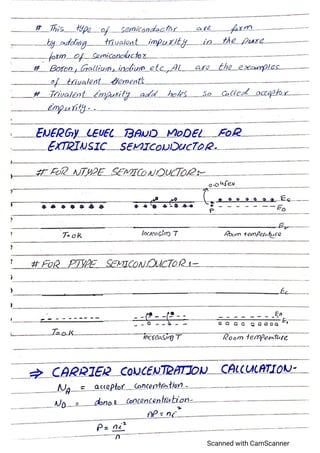 # This type of semiconductor are form
by adding trivalent impurity in the pure
form of semiconductor
# Boron, Gallium, indium etc, Al are the examples
of trivalent elements
# Trivalent impurity add holes so called acceptor
impurity.
ENERGY LEVEL BAND MODEL FOR
EXTRINSIC SEMICONDUCTOR.
# FOR NTYPE SEMICONDUCTOR:-
Ec
ED
T=0K Increasing T Room temperature
# FOR PTYPE SEMICONDUCTOR:-
Ec
T=0K Increasing T Room temperature
⇒ CARRIER CONCENTRATION CALCULATION-
NA = acceptor concentration.
ND = donor concencentration-
nP = ni²
P = ni²
n
Scanned with CamScanner